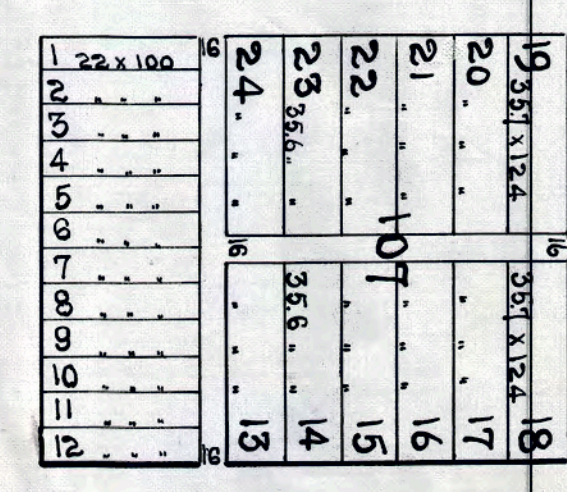 1 22 x 100
2 " " "
3 " " "
4 " " "
5 " " "
6 " " "
7 " " "
8 " " "
9 " " "
10 " " "
11 " " "
12 " " "
16
16
24 " " "
23 35.6 "
22 " " "
21 " " "
20 " " "
19 35.7 x 124
16
107
16
13 " " "
35.6 " " 14
15 " " "
16 " " "
17 " " "
35.7 x 124 18